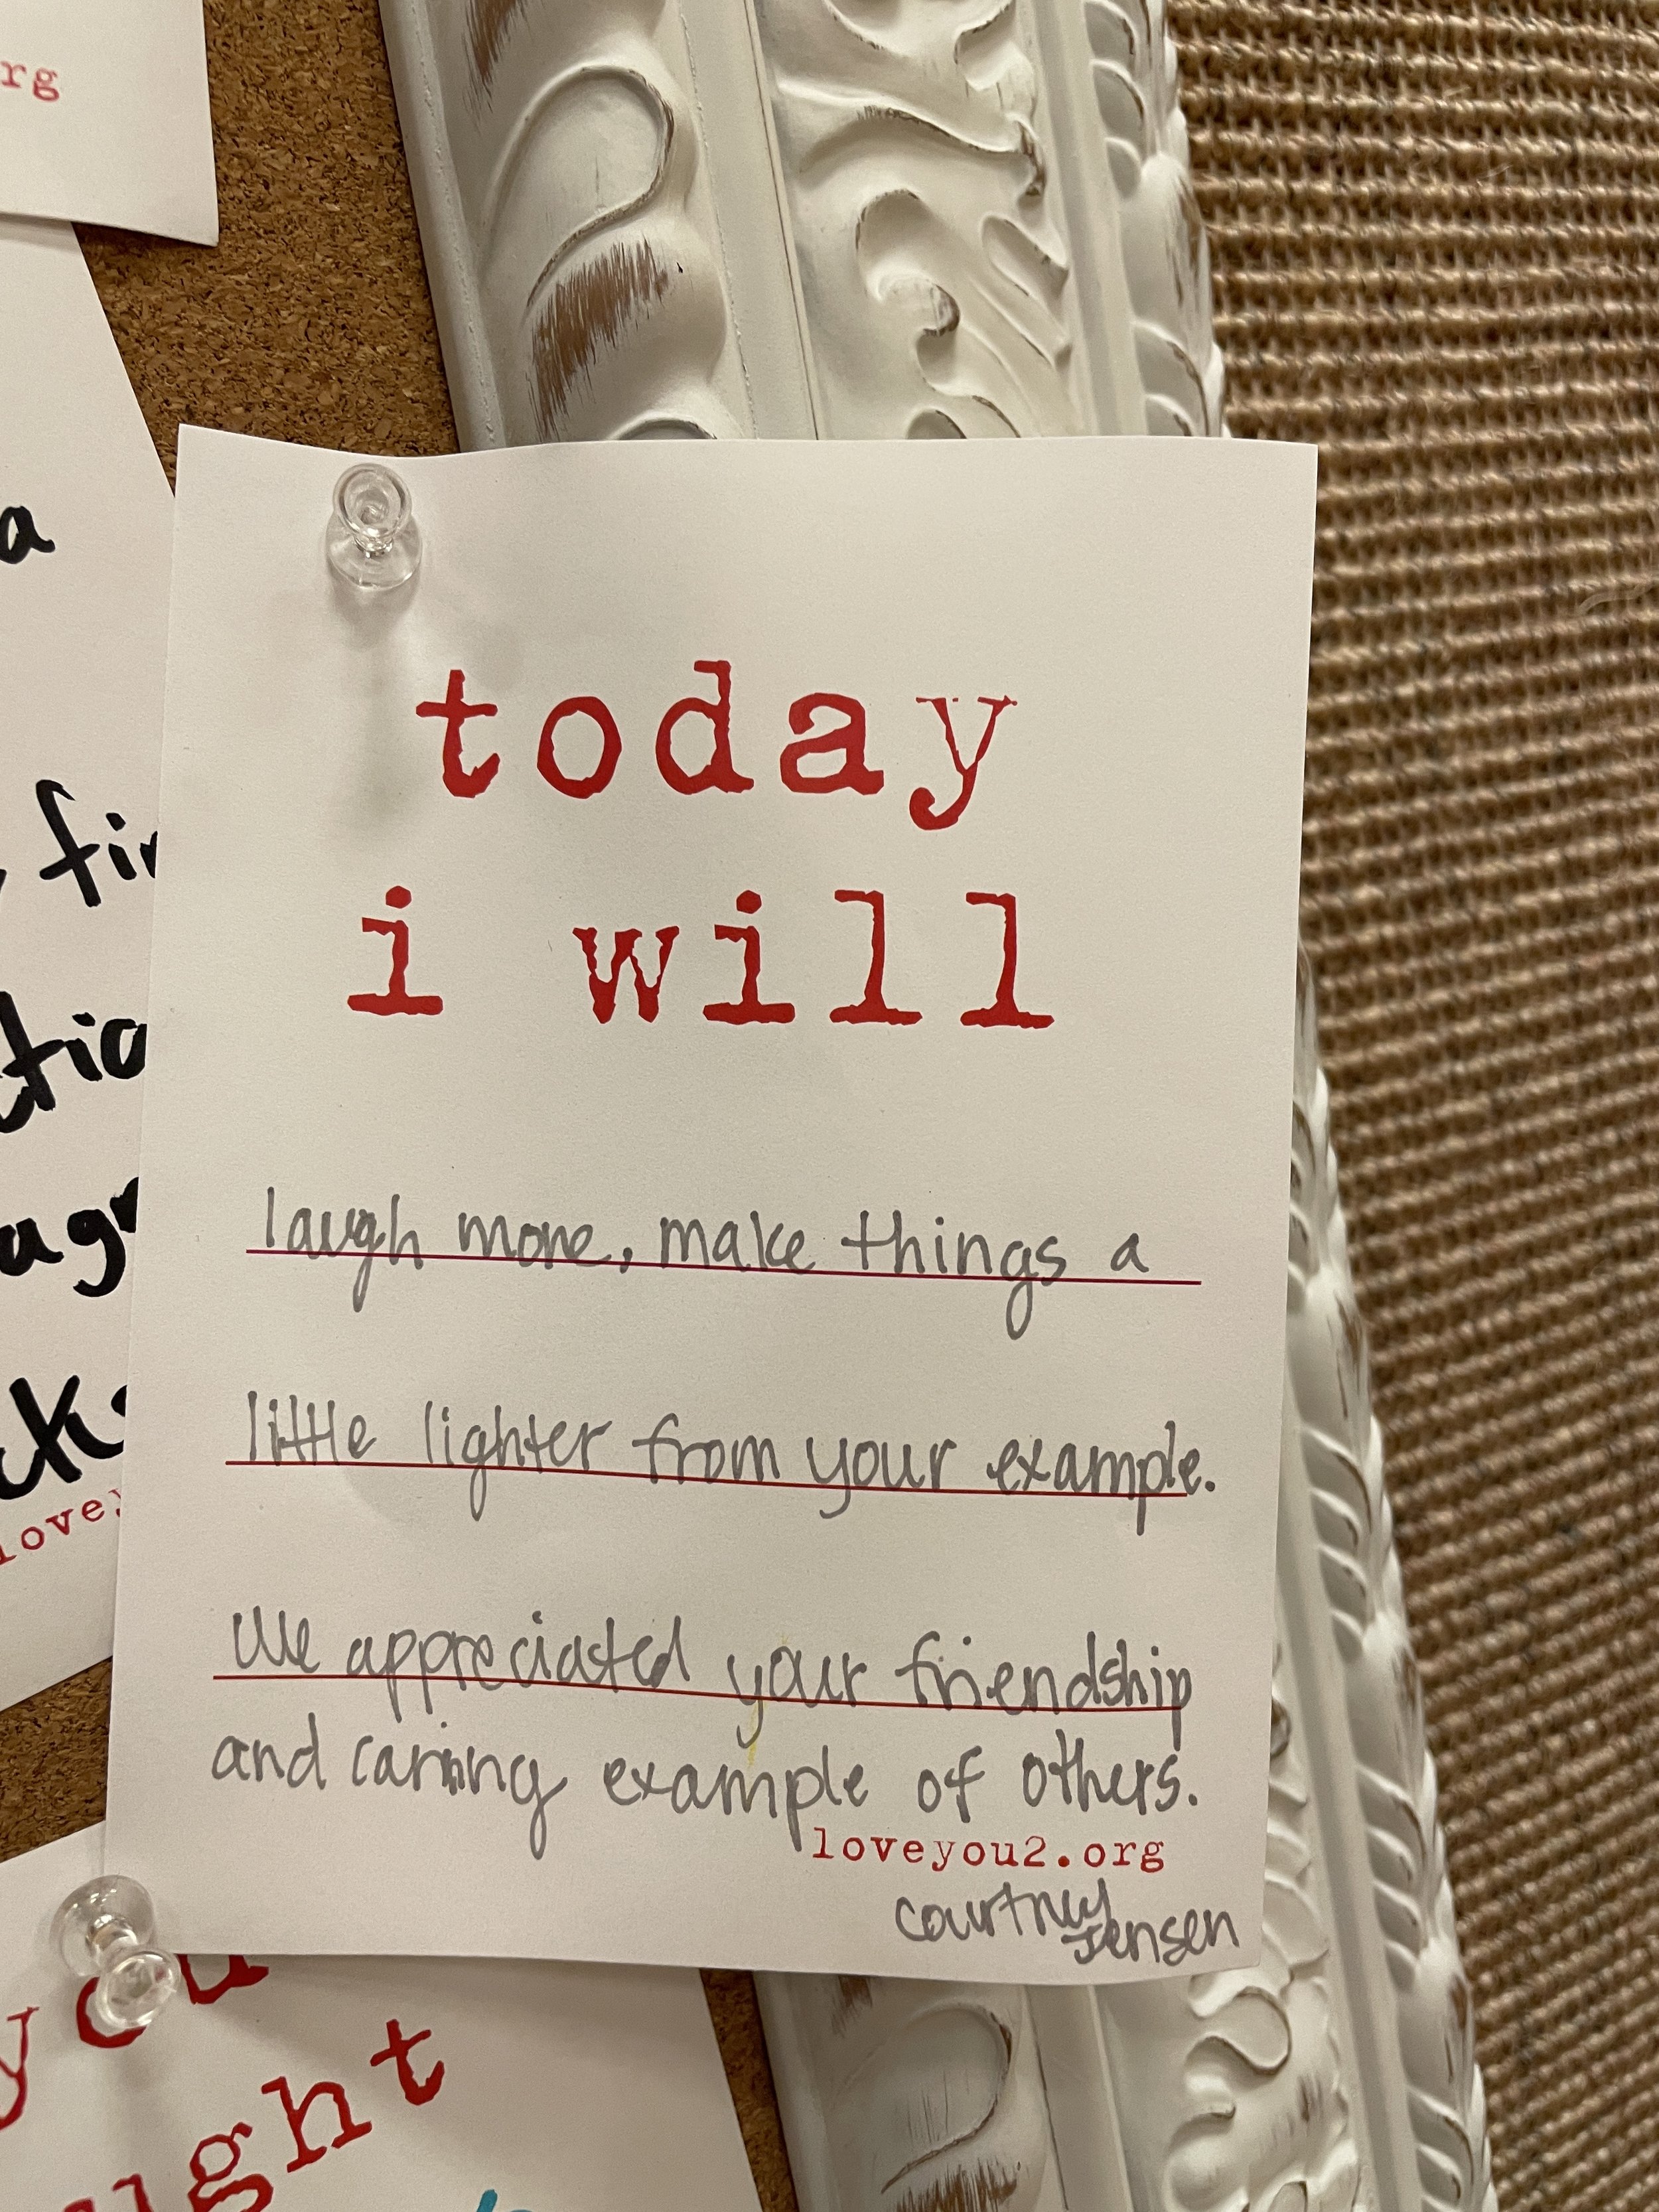 rg
a
fir
ctio
agr
cks
lovey
today
i will
laugh more, make things a
little lighter from your example.
We appreciated your friendship
and caring example of others.
loveyou2.org
courtney
Jensen
you
ught